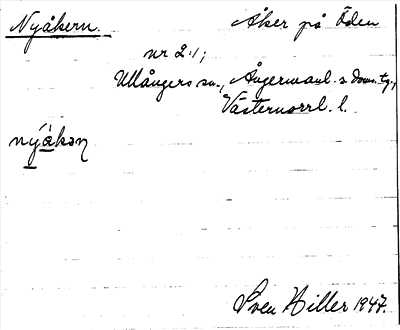 Nyåkern. Åker på Öden
nr 2:1;
Ullångers sn., Ångermanl. s. doms. tg.,
Västernorrl. l.
nýåkən
Sven Hiller 1947.